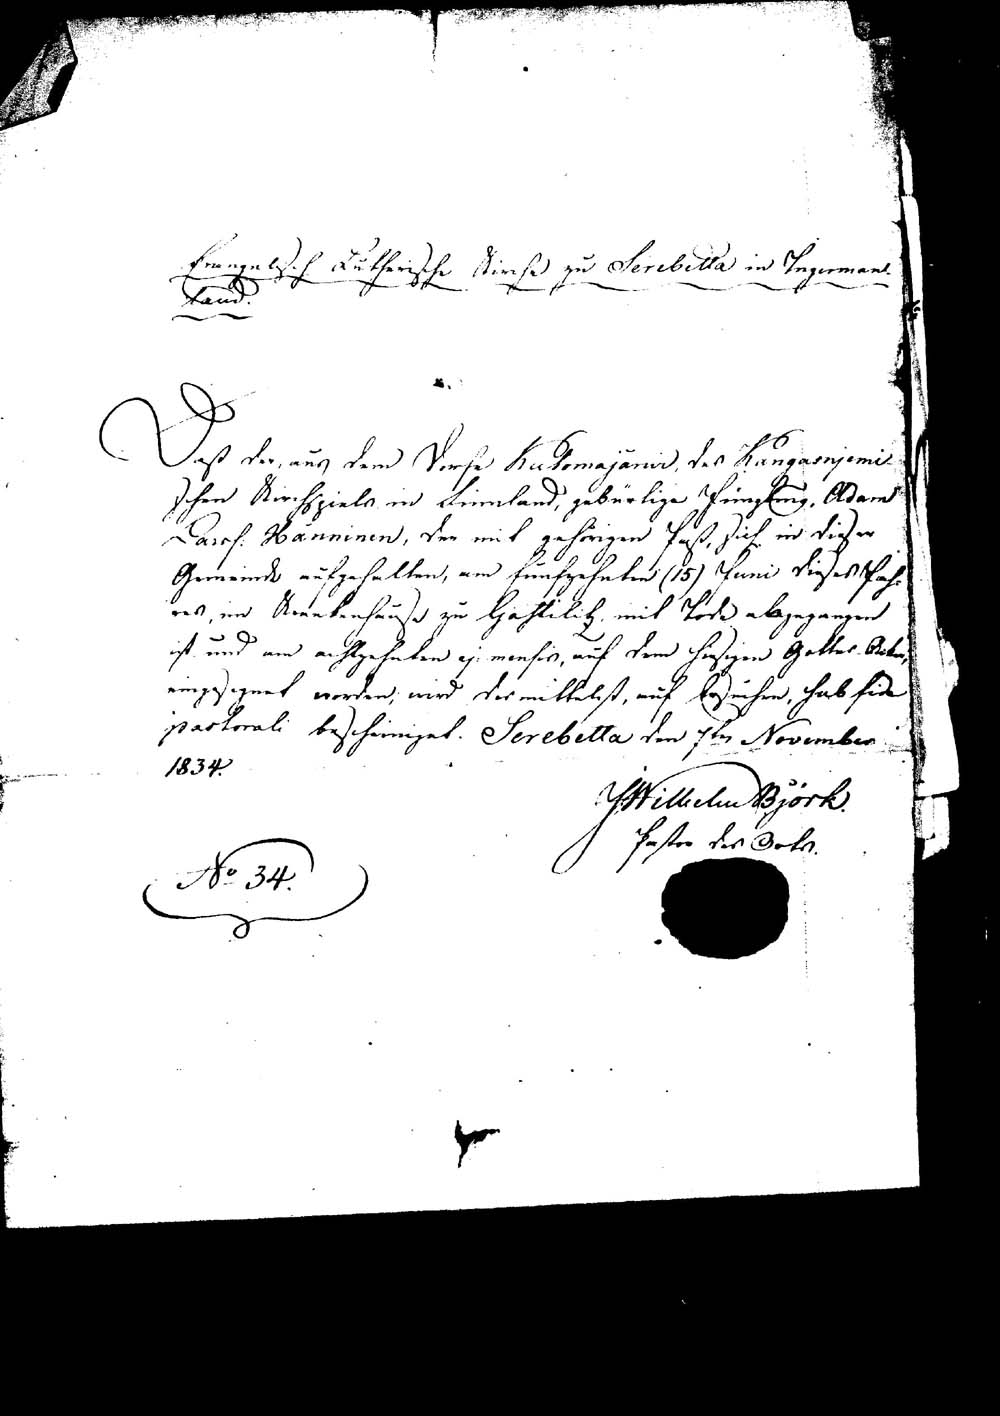 Evangelisch Lutherische Kirche zu Serebetta in Ingerman-
land.
Daß der, aus dem Dorfe Kutomajärwi, des Kangasnjemi-
schen Kirchspiels in Finnland, gebürtige Jüngling, Adam
Larsf. Hänninen, der mit gehörigen Paß, sich in dieser
Gemeinde aufgehalten, am funfzehnten (15) Juni dieses Jah-
res, im Krankenhause zu mit Tode abgegangen
ist und am achtzehnten ej. mensis, auf dem hiesigen Gottes-Acker,
eingesegnet worden; wird desmittelst, auf Ersuchen, sub fide
pastorali bescheiniget. Serebetta den 7ten November
1834.
J. Wilhelm Björk.
Pastor des Orts.
No 34.